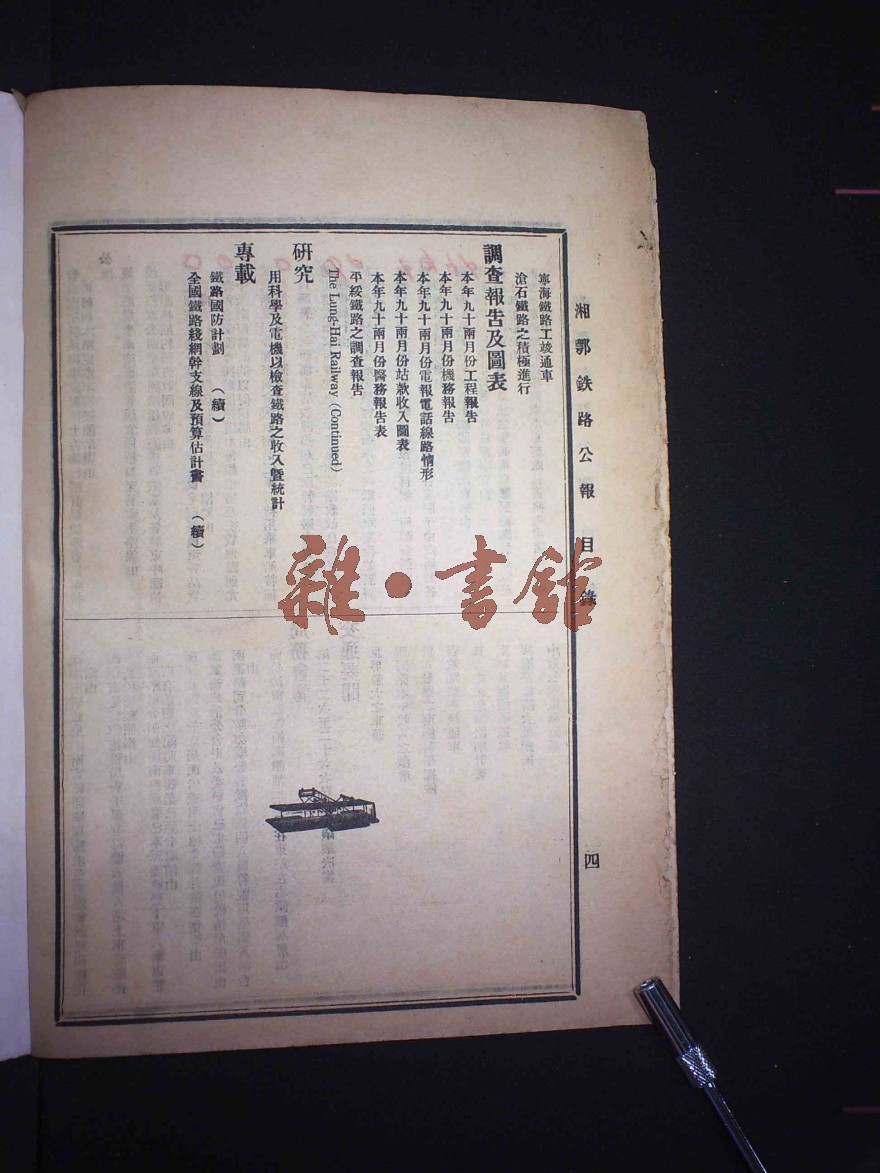 湘鄂鉄路公報 目錄 四
寧海鐵路工竣通車
滄石鐵路之積極進行
調查報告及圖表
本年九十兩月份工程報告
本年九十兩月份機務報告
本年九十兩月份電報電話線路情形
本年九十兩月份站款收入圖表
本年九十兩月份醫務報告表
平綏鐵路之調查報告
The Lung-Hai Railway (Continued)
研究
用科學及電機以檢查鐵路之收入曁統計
專載
鐵路國防計劃 (續)
全國鐵路綫網幹支線及預算估計書 (續)
雜·書館